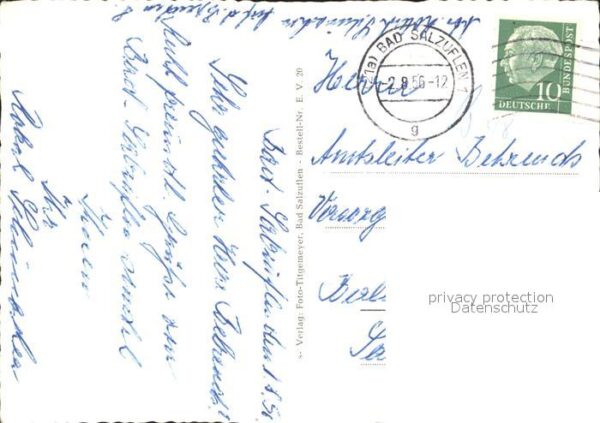 Bad Salzuflen, den 1.8.56
Sehr geehrter Herr Behrends!
Recht freundl. Grüße aus
Bad-Salzuflen sendet
Ihnen
Ihr
s- Verlag: Foto-Titgemeyer, Bad Salzuflen - Bestell-Nr. E. V. 20
(21a) BAD SALZUFLEN 1
-2.8.56-12
g
10
DEUTSCHE
BUNDESPOST
Herrn
Amtsleiter Behrends
Versorg
Berl
privacy protection
Datenschutz